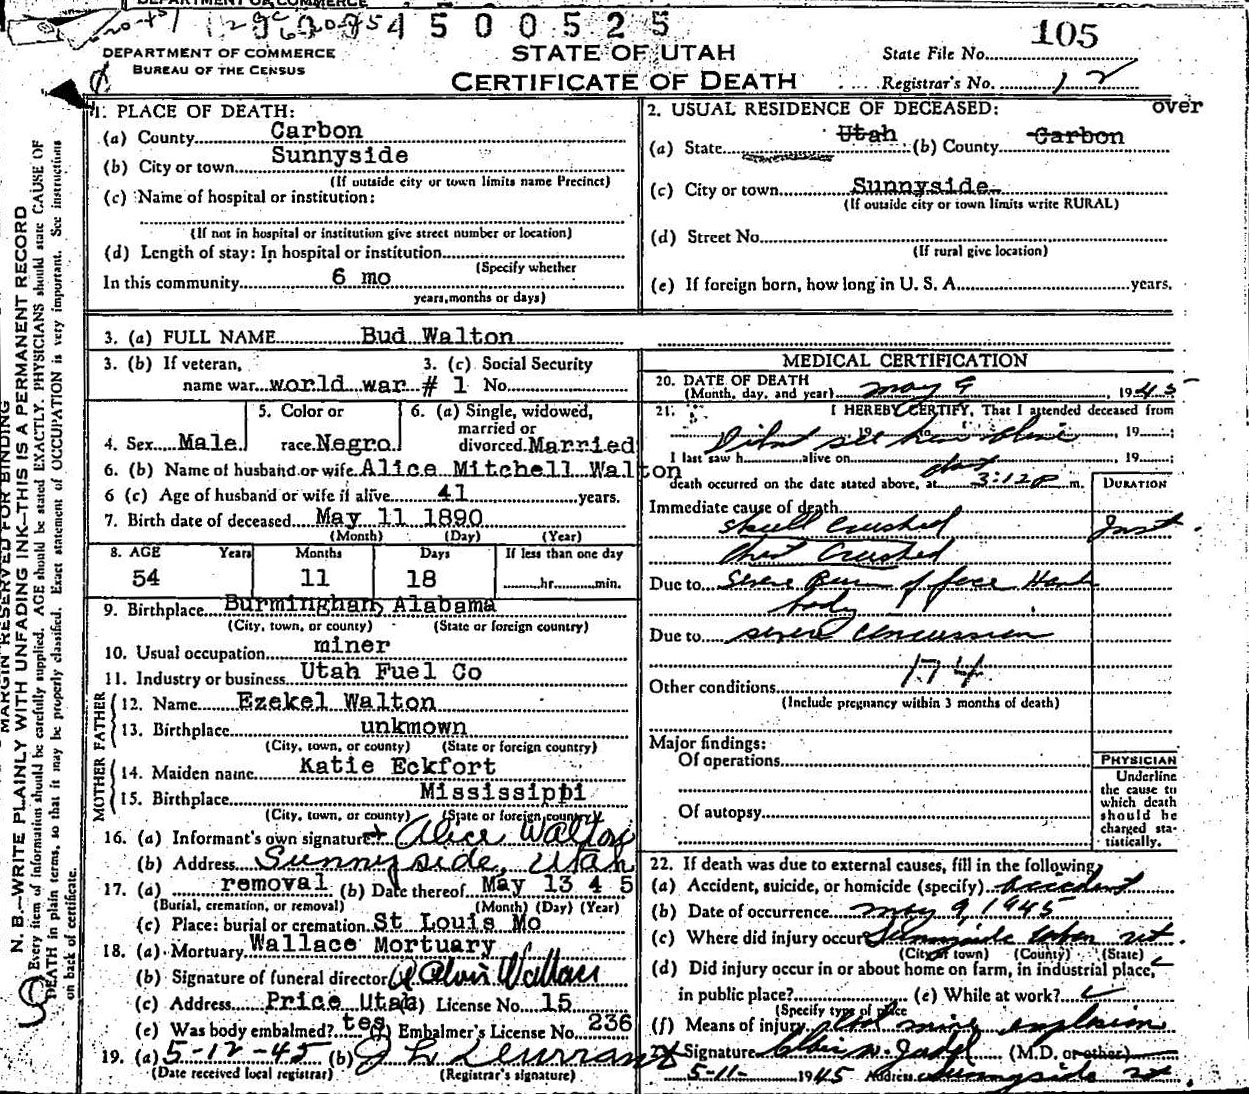 DEPARTMENT OF COMMERCE
4 5 0 0 5 2 5
DEPARTMENT OF COMMERCE
BUREAU OF THE CENSUS
STATE OF UTAH
CERTIFICATE OF DEATH
State File No. 105
Registrar's No. 12
MARGIN RESERVED FOR BINDING
N. B.—WRITE PLAINLY WITH UNFADING INK—THIS IS A PERMANENT RECORD
Every item of information should be carefully supplied. AGE should be stated EXACTLY. PHYSICIANS should state CAUSE OF
DEATH in plain terms, so that it may be properly classified. Exact statement of OCCUPATION is very important. See instructions
on back of certificate.
1. PLACE OF DEATH:
(a) County Carbon
(b) City or town Sunnyside
(If outside city or town limits name Precinct)
(c) Name of hospital or institution:
(If not in hospital or institution give street number or location)
(d) Length of stay: In hospital or institution
(Specify whether
In this community 6 mo
years, months or days)
2. USUAL RESIDENCE OF DECEASED: over
(a) State Utah (b) County Carbon
(c) City or town Sunnyside
(If outside city or town limits write RURAL)
(d) Street No.
(If rural give location)
(e) If foreign born, how long in U. S. A. years.
3. (a) FULL NAME Bud Walton
3. (b) If veteran, 3. (c) Social Security
name war world war # 1 No.
5. Color or 6. (a) Single, widowed,
married or
4. Sex Male race Negro divorced Married
6. (b) Name of husband or wife Alice Mitchell Walton
6 (c) Age of husband or wife if alive 41 years.
7. Birth date of deceased May 11 1890
(Month) (Day) (Year)
8. AGE Years Months Days If less than one day
54 11 18 hr. min.
9. Birthplace Burmingham, Alabama
(City, town, or county) (State or foreign country)
10. Usual occupation miner
11. Industry or business Utah Fuel Co
FATHER
12. Name Ezekel Walton
13. Birthplace unkmown
(City, town, or county) (State or foreign country)
MOTHER
14. Maiden name Katie Eckfort
15. Birthplace Mississippi
(City, town, or county) (State or foreign country)
16. (a) Informant's own signature + Alice Walton
(b) Address Sunnyside, Utah
17. (a) removal (b) Date thereof May 13 4 5
(Burial, cremation, or removal) (Month) (Day) (Year)
(c) Place: burial or cremation St Louis Mo
18. (a) Mortuary Wallace Mortuary
(b) Signature of funeral director Wallace
(c) Address Price Utah License No. 15
(e) Was body embalmed? tes Embalmer's License No. 236
19. (a) 5-12-45 (b)
(Date received local registrar) (Registrar's signature)
MEDICAL CERTIFICATION
20. DATE OF DEATH
(Month, day, and year) May 9, 1945
21. I HEREBY CERTIFY, That I attended deceased from
Did not see him alive 19
I last saw h alive on 19
death occurred on the date stated above, at 3:12 P m.
DURATION
Immediate cause of death
Skull Crushed Inst.
Chest Crushed
Due to Severe Burn of face Hand
body
Due to severe concussion
174
Other conditions
(Include pregnancy within 3 months of death)
Major findings:
Of operations
Of autopsy
PHYSICIAN
Underline
the cause to
which death
should be
charged sta-
tistically.
22. If death was due to external causes, fill in the following
(a) Accident, suicide, or homicide (specify) accident
(b) Date of occurrence may 9 1945
(c) Where did injury occur Sunnyside Carbon Ut.
(City or town) (County) (State)
(d) Did injury occur in or about home on farm, in industrial place,
in public place? (e) While at work? ✓
(Specify type of place
(f) Means of injury mine explosion
23. Signature (M.D. or other)
5-11- 1945 Address Sunnyside Ut